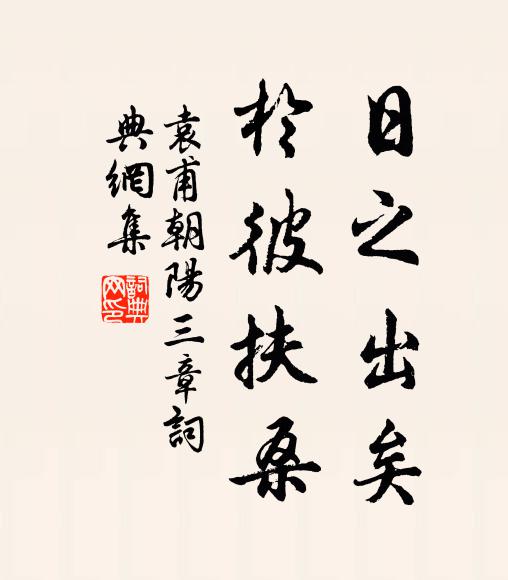 日之出矣
於彼扶桑
袁甫朝陽三章詞
典網集
詞典
网印